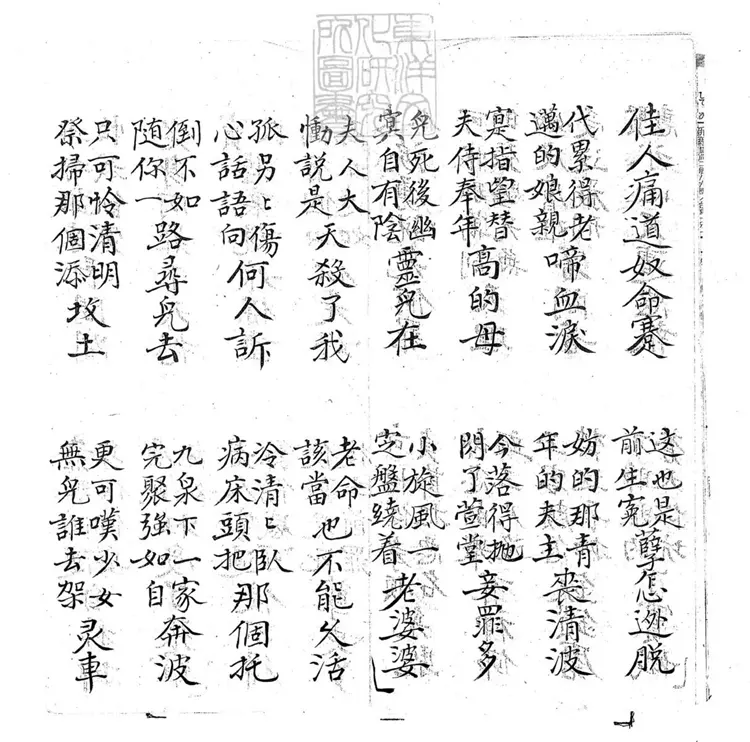 東洋文化研究所圖書
佳人痛道奴命蹇
这也是前生冤孽怎迯脱
代累得老邁的娘親啼血淚
妨的那青年的夫主丧清波
寔指望替夫侍奉年高的母
今落得抛閃了萱堂妾罪多
兒死後幽冥自有陰靈兒在
小旋風一定盤繞着老婆婆
夫人大慟説是天殺了我
老命該當也不能久活
孤另〻傷心話語向何人訴
冷清〻臥病床頭把那個托
倒不如随你一路尋兒去
九泉下一家完聚强如自奔波
只可怜清明祭掃那個添坟土
更可嘆少女無兒誰去架灵車